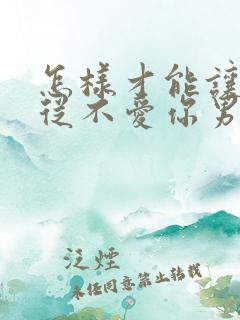 怎樣才能讓
從不愛你男
泛煙
未经同意禁止转载